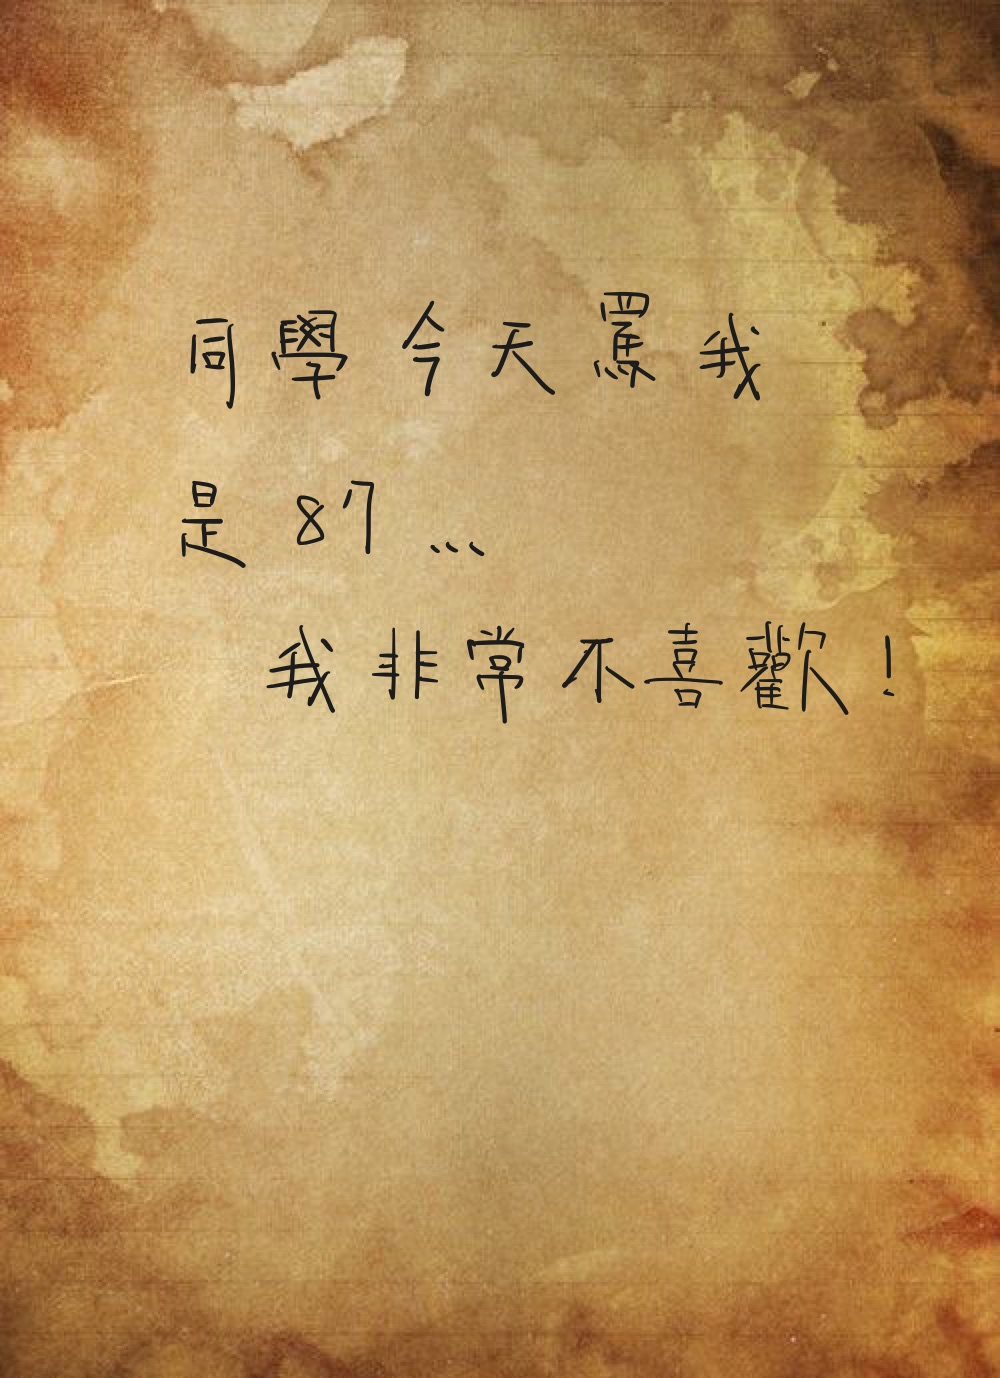 同學今天罵我
是87...
我非常不喜歡!